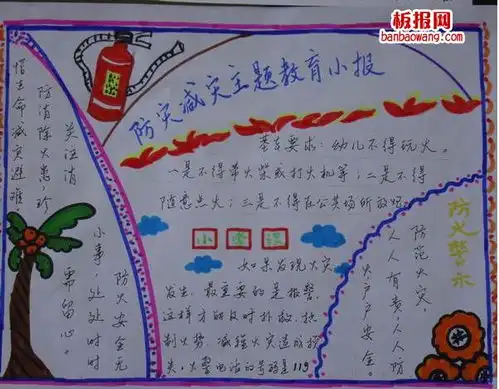 板报网
www.banbaowang.com
防灾减灾主题教育小报
基本要求：幼儿不得玩火。
一是不得带火柴或打火机等；二是不得
随意点火；三是不得在公共场所放
关注消
防消除火患珍
惜生命减灾避难
小常识
如果发现火灾
发生，最重要的是报警，
这样才能及时扑救，控
制火势，减轻火灾造成损
失，火警电话的号码是119
防火安全无
小事，处处时时
需留心。
防火警示
防范火灾，
人人有责，人人防
火户户安全。